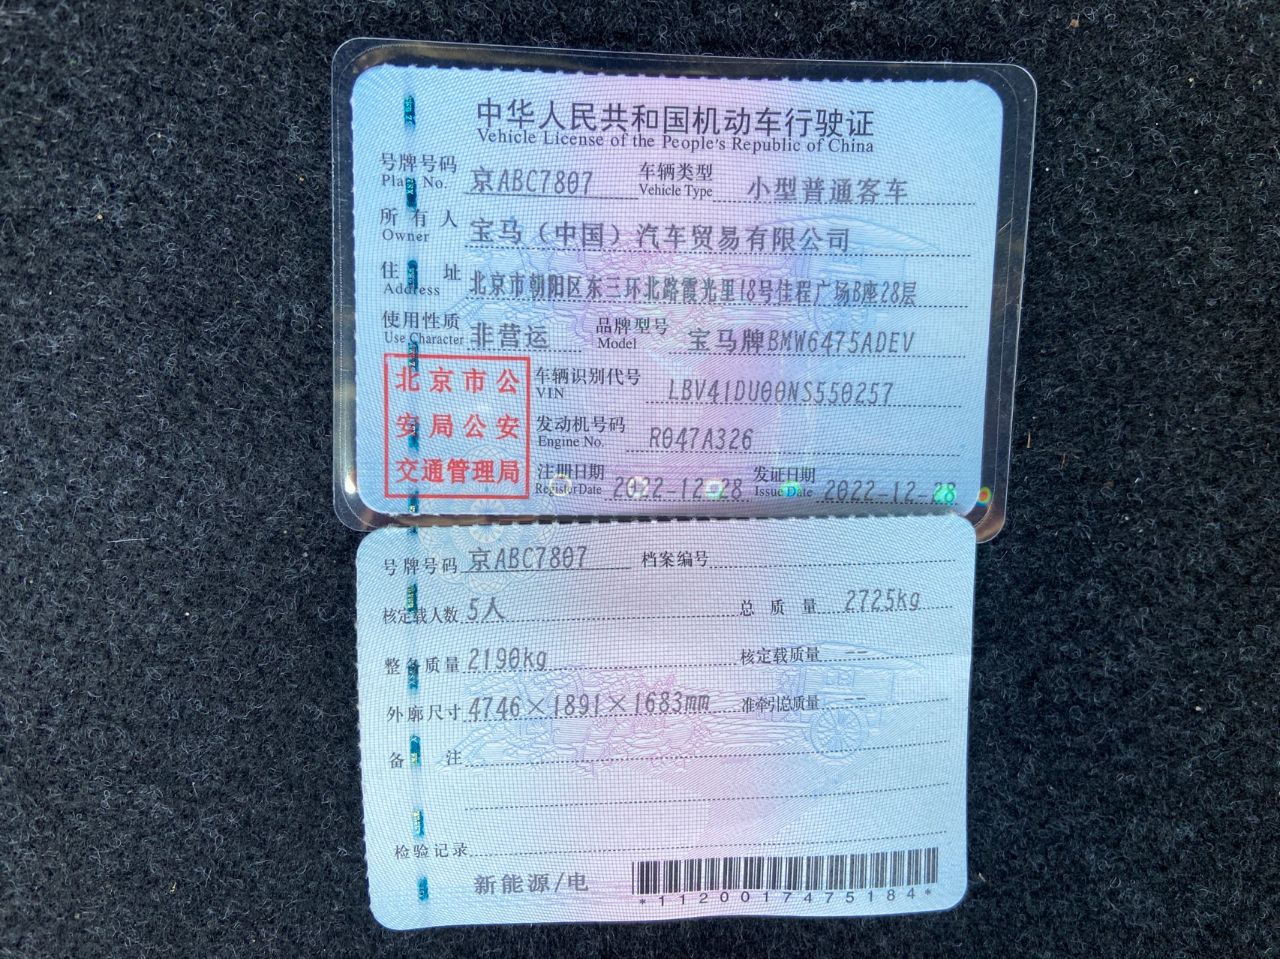 中华人民共和国机动车行驶证
Vehicle License of the People's Republic of China
号牌号码 京ABC7807 车辆类型 小型普通客车
Plate No. Vehicle Type
所有人 宝马（中国）汽车贸易有限公司
Owner
住址 北京市朝阳区东三环北路霞光里18号佳程广场B座28层
Address
使用性质 非营运 品牌型号 宝马牌BMW6475ADEV
Use Character Model
北京市公
安局公安
交通管理局
车辆识别代号 LBV41DU00NS550257
VIN
发动机号码 R047A326
Engine No.
注册日期 2022-12-28 发证日期 2022-12-28
Register Date Issue Date
号牌号码 京ABC7807 档案编号
核定载人数 5人 总质量 2725kg
整备质量 2190kg 核定载质量 --
外廓尺寸 4746×1891×1683mm 准牵引总质量 --
备注
检验记录
新能源/电
*1120017475184*